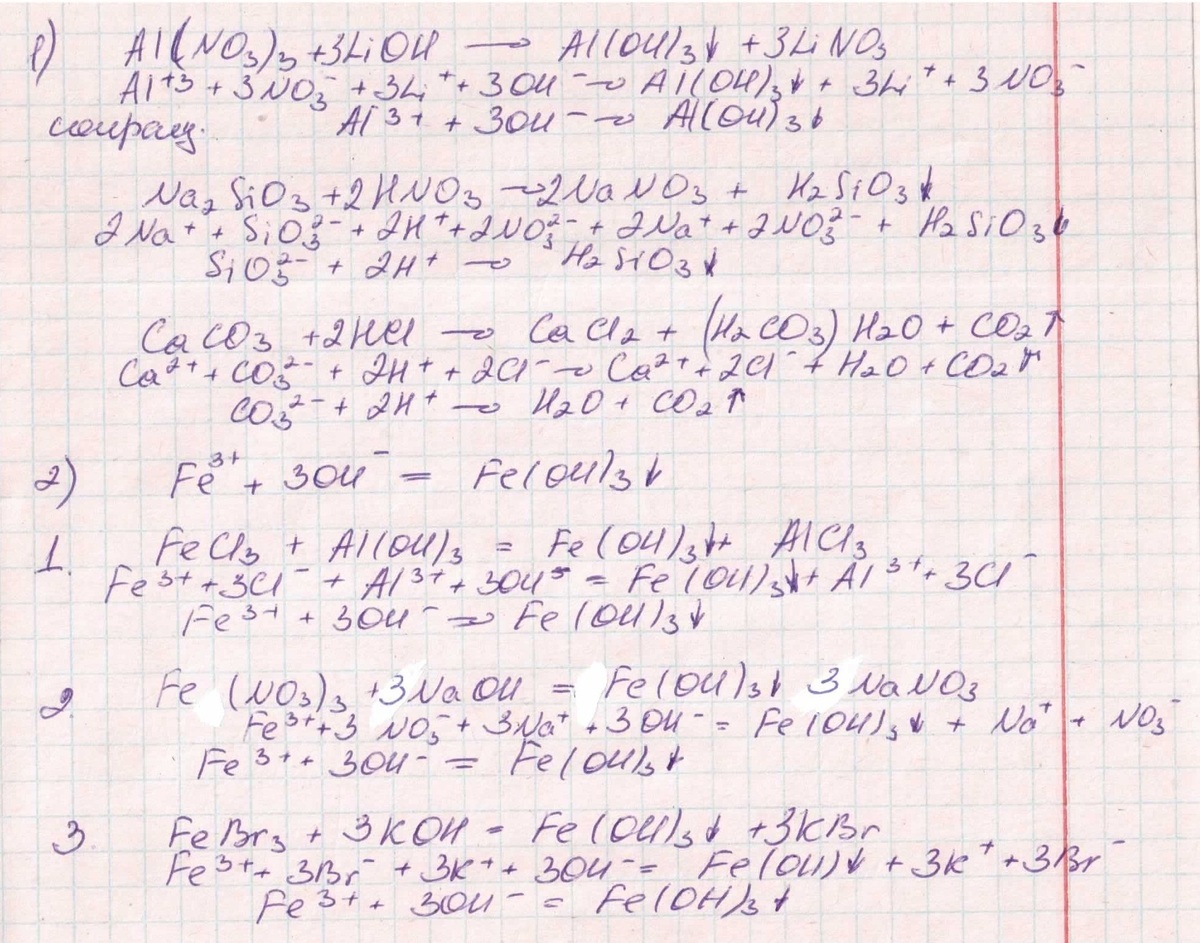 1) Al(NO₃)₃ + 3LiOH → Al(OH)₃↓ + 3LiNO₃
Al⁺³ + 3NO₃⁻ + 3Li⁺ + 3OH⁻ → Al(OH)₃↓ + 3Li⁺ + 3NO₃⁻
сокращ. Al³⁺ + 3OH⁻ → Al(OH)₃↓
Na₂SiO₃ + 2HNO₃ → 2NaNO₃ + H₂SiO₃↓
2Na⁺ + SiO₃²⁻ + 2H⁺ + 2NO₃²⁻ + 2Na⁺ + 2NO₃²⁻ + H₂SiO₃↓
SiO₃²⁻ + 2H⁺ → H₂SiO₃↓
CaCO₃ + 2HCl → CaCl₂ + (H₂CO₃) H₂O + CO₂↑
Ca²⁺ + CO₃²⁻ + 2H⁺ + 2Cl⁻ → Ca²⁺ + 2Cl⁻ + H₂O + CO₂↑
CO₃²⁻ + 2H⁺ → H₂O + CO₂↑
2) Fe³⁺ + 3OH⁻ = Fe(OH)₃↓
1. FeCl₃ + Al(OH)₃ = Fe(OH)₃↓ + AlCl₃
Fe³⁺ + 3Cl⁻ + Al³⁺ + 3OH⁻ = Fe(OH)₃↓ + Al³⁺ + 3Cl⁻
Fe³⁺ + 3OH⁻ → Fe(OH)₃↓
2. Fe(NO₃)₃ + 3NaOH = Fe(OH)₃↓ 3NaNO₃
Fe³⁺ + 3NO₃⁻ + 3Na⁺ + 3OH⁻ = Fe(OH)₃↓ + Na⁺ + NO₃⁻
Fe³⁺ + 3OH⁻ = Fe(OH)₃↓
3. FeBr₃ + 3KOH = Fe(OH)₃↓ + 3KBr
Fe³⁺ + 3Br⁻ + 3K⁺ + 3OH⁻ = Fe(OH)↓ + 3K⁺ + 3Br⁻
Fe³⁺ + 3OH⁻ = Fe(OH)₃↓